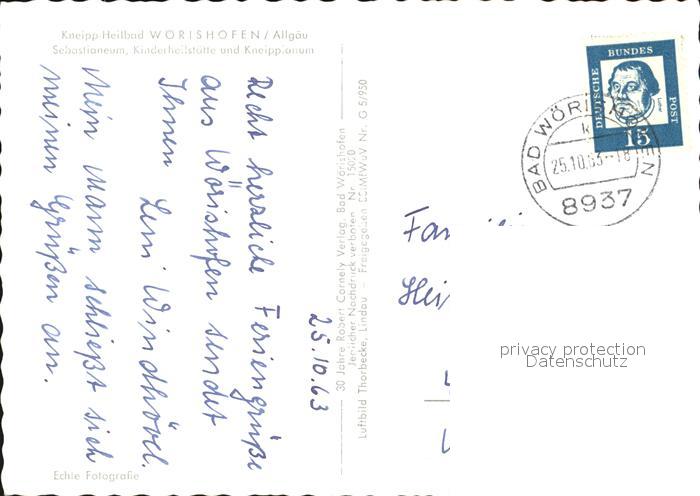 Kneipp-Heilbad WÖRISHOFEN / Allgäu
Sebastianeum, Kinderheilstätte und Kneippianum
25.10.63
Recht herzliche Feriengrüße
aus Wörishofen sendet
Ihnen Leni Windhövel.
Mein Mann schließt sich
meinen Grüßen an.
Echte Fotografie
30 Jahre Robert Cornely Verlag, Bad Wörishofen
Jeglicher Nachdruck verboten Nr. 15000
Luftbild Thorbecke, Lindau – Freigegeben Nr. G 5/950
DEUTSCHE
BUNDES
POST
Luther
15
BAD WÖRISHOFEN
25.10.63-18
8937
privacy protection
Datenschutz